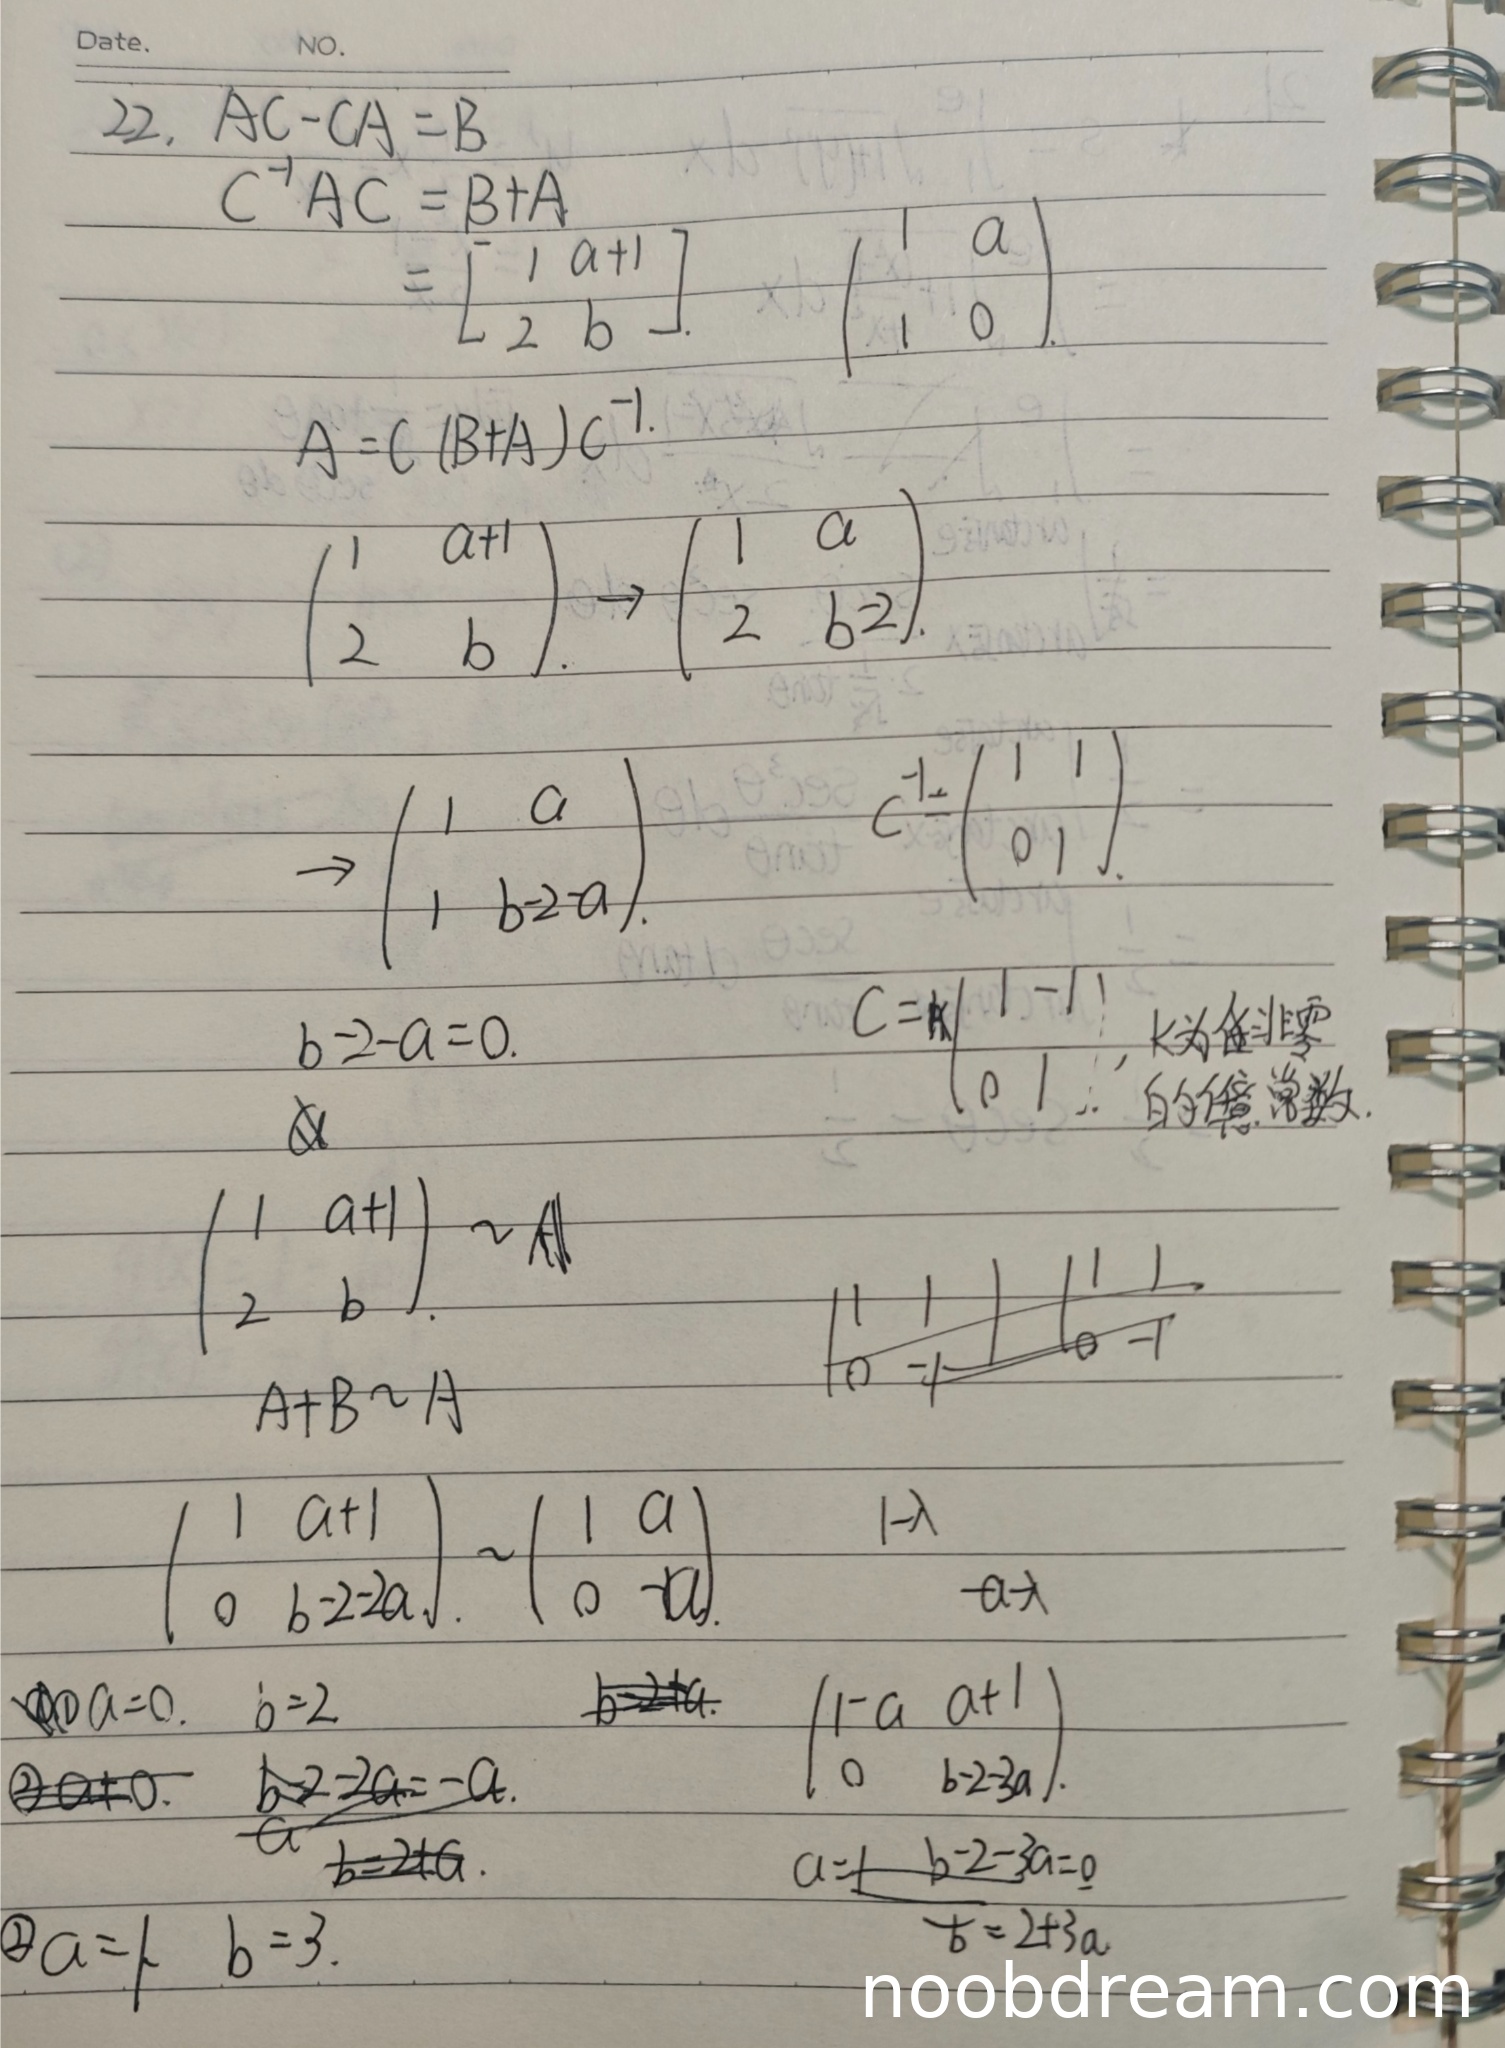 Date. NO.
22. AC-CA=B
C⁻¹AC=B+A
= [1 a+1
2 b].
(1 a
1 0).
A=C(B+A)C⁻¹.
(1 a+1
2 b).
→ (1 a
2 b-2).
→ (1 a
1 b-2-a).
C⁻¹= (1 1
0 1).
b-2-a=0.
C=k(1 -1
0 1), k为非零
的任意常数.
(1 a+1
2 b). ~ A
A+B~A
(1 1
0 -1
(1 1
0 -1
(1 a+1
0 b-2-2a). ~ (1 a
0 -a).
1-λ
-a-λ
① a=0. b=2
b=2+a.
② a≠0. b-2-2a=-a.
a
b=2+a.
(1-a a+1
0 b-2-3a).
a=1 b-2-3a=0
b=2+3a
② a=-1 b=3.
noobdream.com